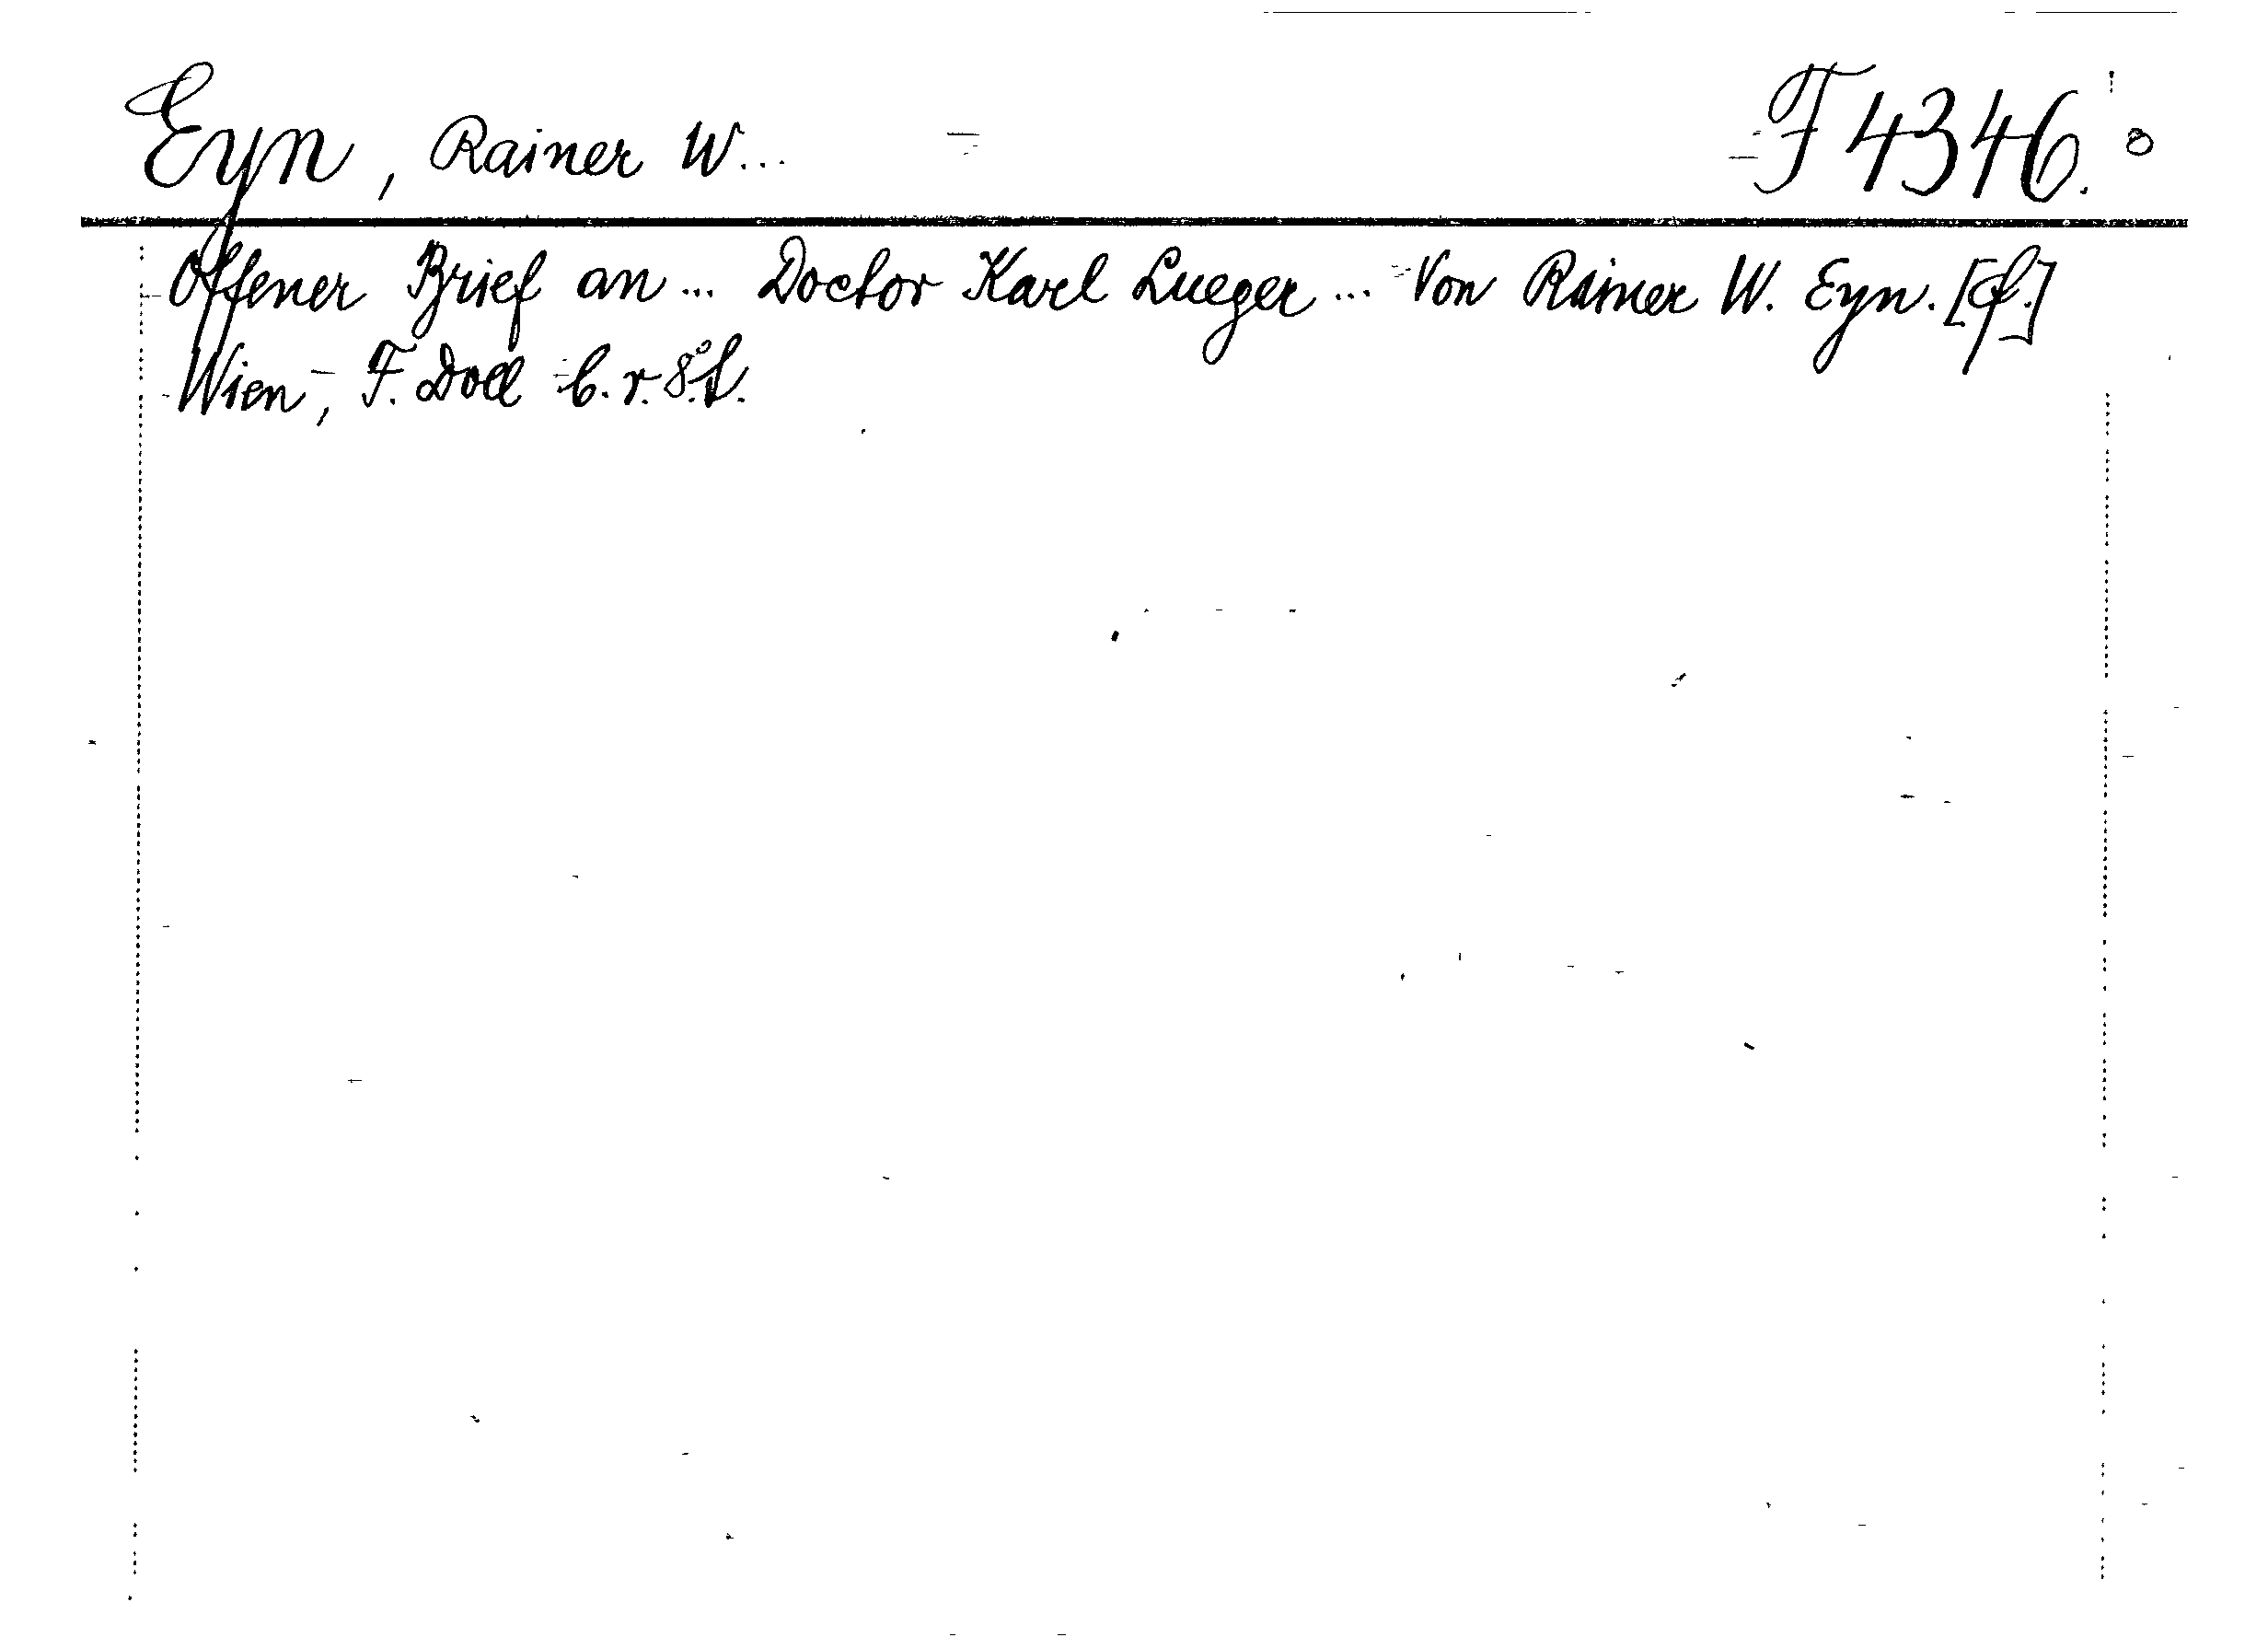 Eyn, Rainer W... F 4346.
Offener Brief an... Doctor Karl Lueger... Von Rainer W. Eyn. [cf.]
Wien, F. Doll b. r. 8°.